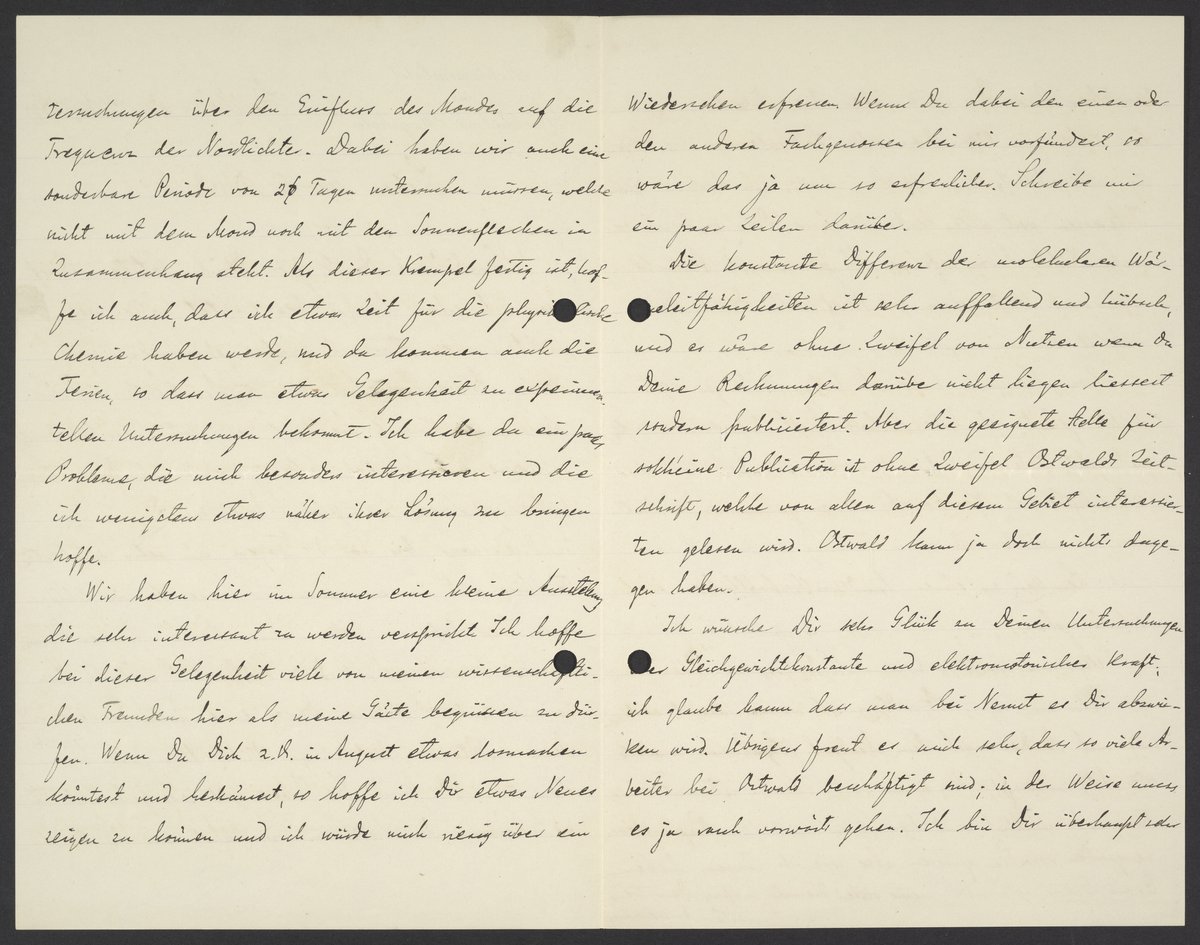 tersuchungen über den Einfluss des Mondes auf die
Frequenz der Nordlichter. Dabei haben wir auch eine
sonderbare Periode von 26 Tagen untersuchen müssen, welche
nicht mit dem Mond noch mit den Sonnenflecken in
Zusammenhang steht. Als dieser Krempel fertig ist, hof-
fe ich auch, dass ich etwas Zeit für die physikalische
Chemie haben werde, und da kommen auch die
Ferien, so dass man etwas Gelegenheit zu experimen-
tellen Untersuchungen bekommt. Ich habe da ein paar
Probleme, die mich besonders interessieren und die
ich wenigstens etwas näher ihrer Lösung zu bringen
hoffe.
Wir haben hier im Sommer eine kleine Ausstellung
die sehr interessant zu werden verspricht. Ich hoffe
bei dieser Gelegenheit viele von meinen wissenschaftli-
chen Freunden hier als meine Gäste begrüssen zu dür-
fen. Wenn Du Dich z.B. in August etwas losmachen
könntest und herkämest, so hoffe ich Dir etwas Neues
zeigen zu können und ich würde mich riesig über ein
Wiedersehen erfreuen. Wenn Du dabei den einen oder
den anderen Fachgenossen bei mir vorfändest, so
wäre das ja um so erfreulicher. Schreibe mir
ein paar Zeilen darüber.
Die konstante Differenz der molekularen Wär-
meleitfähigkeiten ist sehr auffallend und hübsch,
und es wäre ohne Zweifel von Nutzen wenn Du
Deine Rechnungen darübe nicht liegen liessest
sondern publiciertest. Aber die geeignete Stelle für
solch eine Publication ist ohne Zweifel Ostwalds Zeit-
schrift, welche von allen auf diesem Gebiet interessier-
ten gelesen wird. Ostwald kann ja doch nichts dage-
gen haben.
Ich wünsche Dir sehr Glück zu Deinen Untersuchungen
über Gleichgewichtskonstante und elektromotorischer Kraft;
ich glaube kaum dass man bei Nernst es Dir abzwi-
ken wird. Übrigens freut es mich sehr, dass so viele Ar-
beiter bei Ostwald beschäftigt sind; in der Weise muss
es ja rasch vorwärts gehen. Ich bin Dir überhaupt sehr